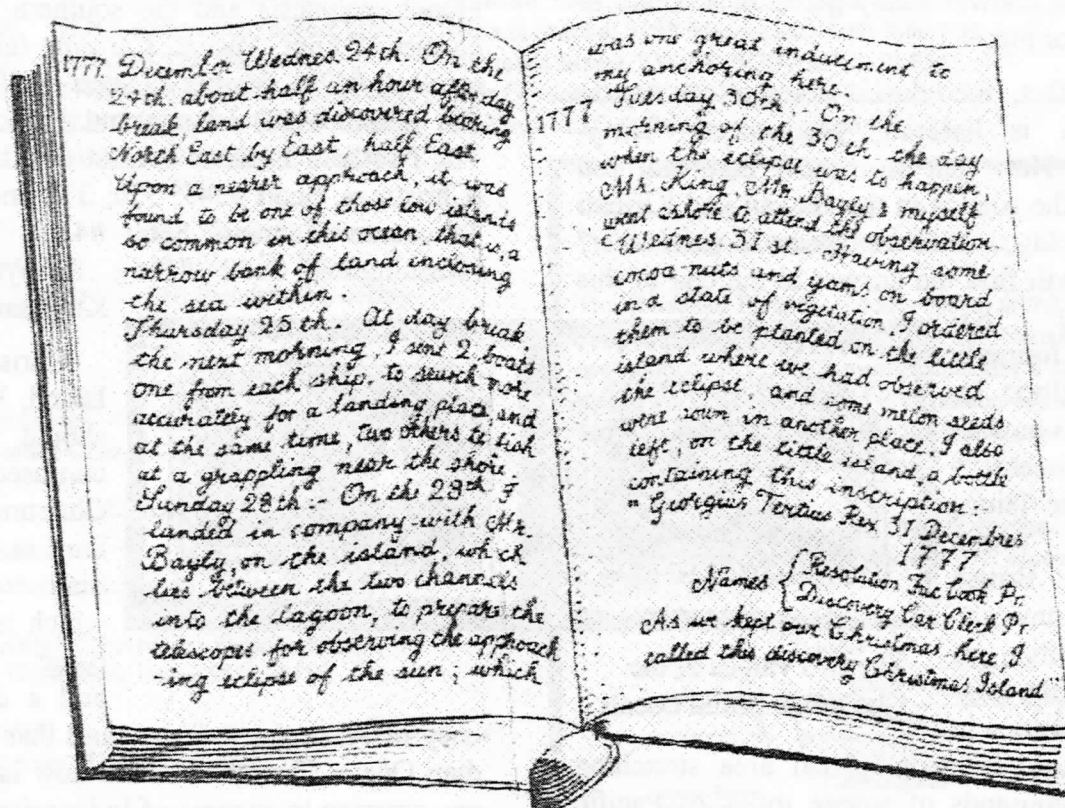 1777. December Wednes. 24th. On the
24th. about half an hour after day
break land was discovered bearing
North East by East half East
Upon a nearer approach, it was
found to be one of those low islands
so common in this ocean, that is, a
narrow bank of land inclosing
the sea within.
Thursday 25th. At day break
the next morning, I sent 2 boats
one from each ship, to search more
accurately for a landing place, and
at the same time, two others to fish
at a grappling near the shore.
Sunday 28th. On the 28th I
landed in company with Mr.
Bayly, on the island, which
lies between the two channels
into the lagoon, to prepare the
telescopes for observing the approach
-ing eclipse of the sun; which
was one great inducement to
my anchoring here.
1777 Tuesday 30th. On the
morning of the 30th the day
when the eclipse was to happen,
Mr. King, Mr. Bayly & myself
went ashore to attend the observation.
Wednes. 31st. Having some
cocoa-nuts and yams on board
in a state of vegitation, I ordered
them to be planted on the little
island where we had observed
the eclipse, and some melon seeds
were sown in another place. I also
left, on the little island, a bottle
containing this inscription:-
"Georgius Tertius Rex 31 Decembres
1777
Names { Resolution Fac Cook Pr.
Discovery Car Clerk Pr.
As we kept our Christmas here, I
called this discovery Christmas Island"